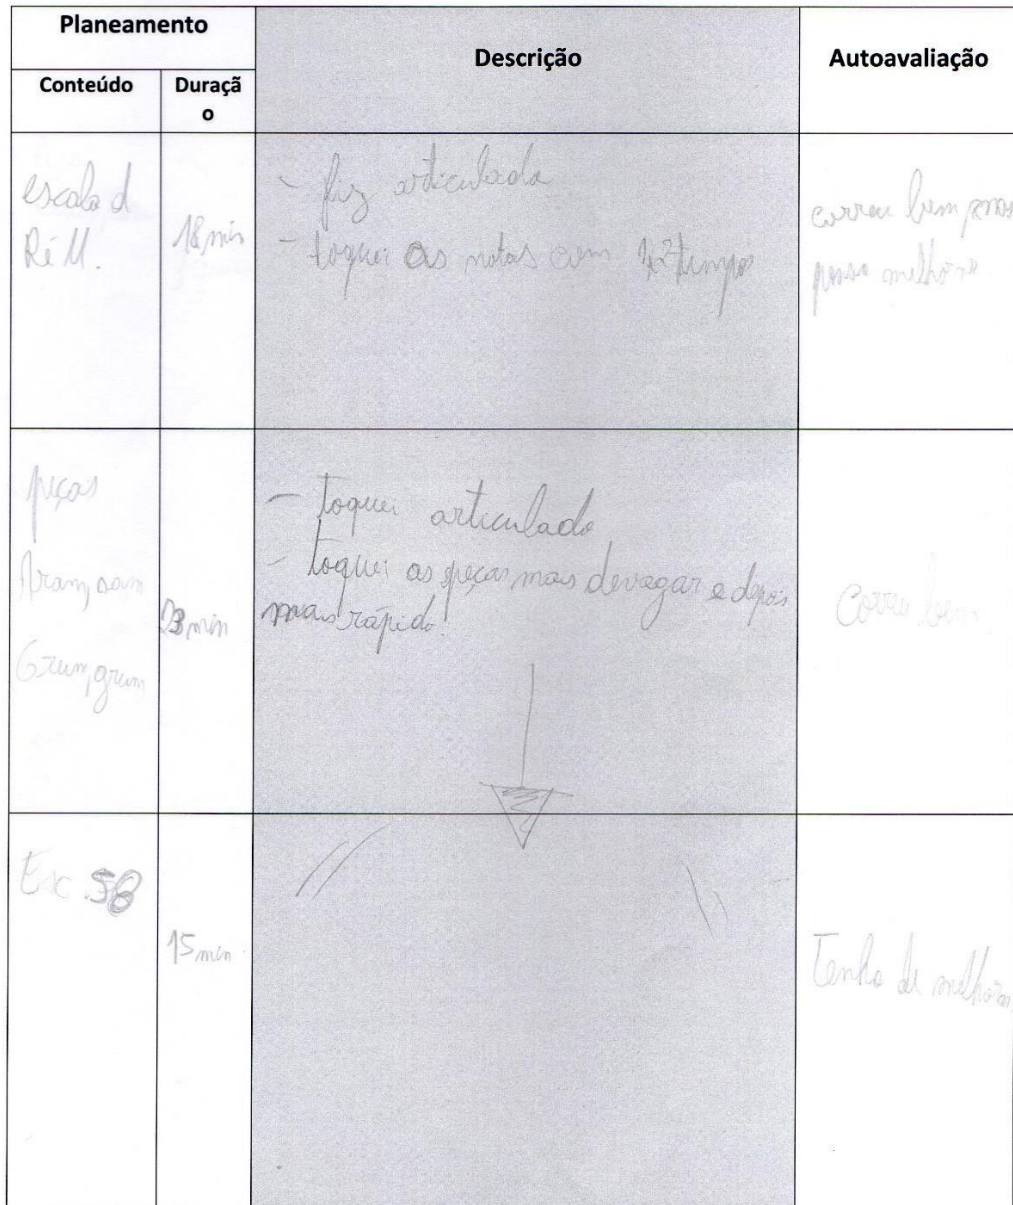 Planeamento
Descrição
Autoavaliação
Conteúdo
Duraçã
o
escala d
Ré M.
18 min
- fiz articulado
- toquei as notas com tempos
correu bem mas
posso melhorar
peças
Grum, grum
23 min
- toquei articulado
- toquei as peças mais devagar e depois
mais rápido.
Correu bem.
Exc. 58
15 min
Tenho de melhorar